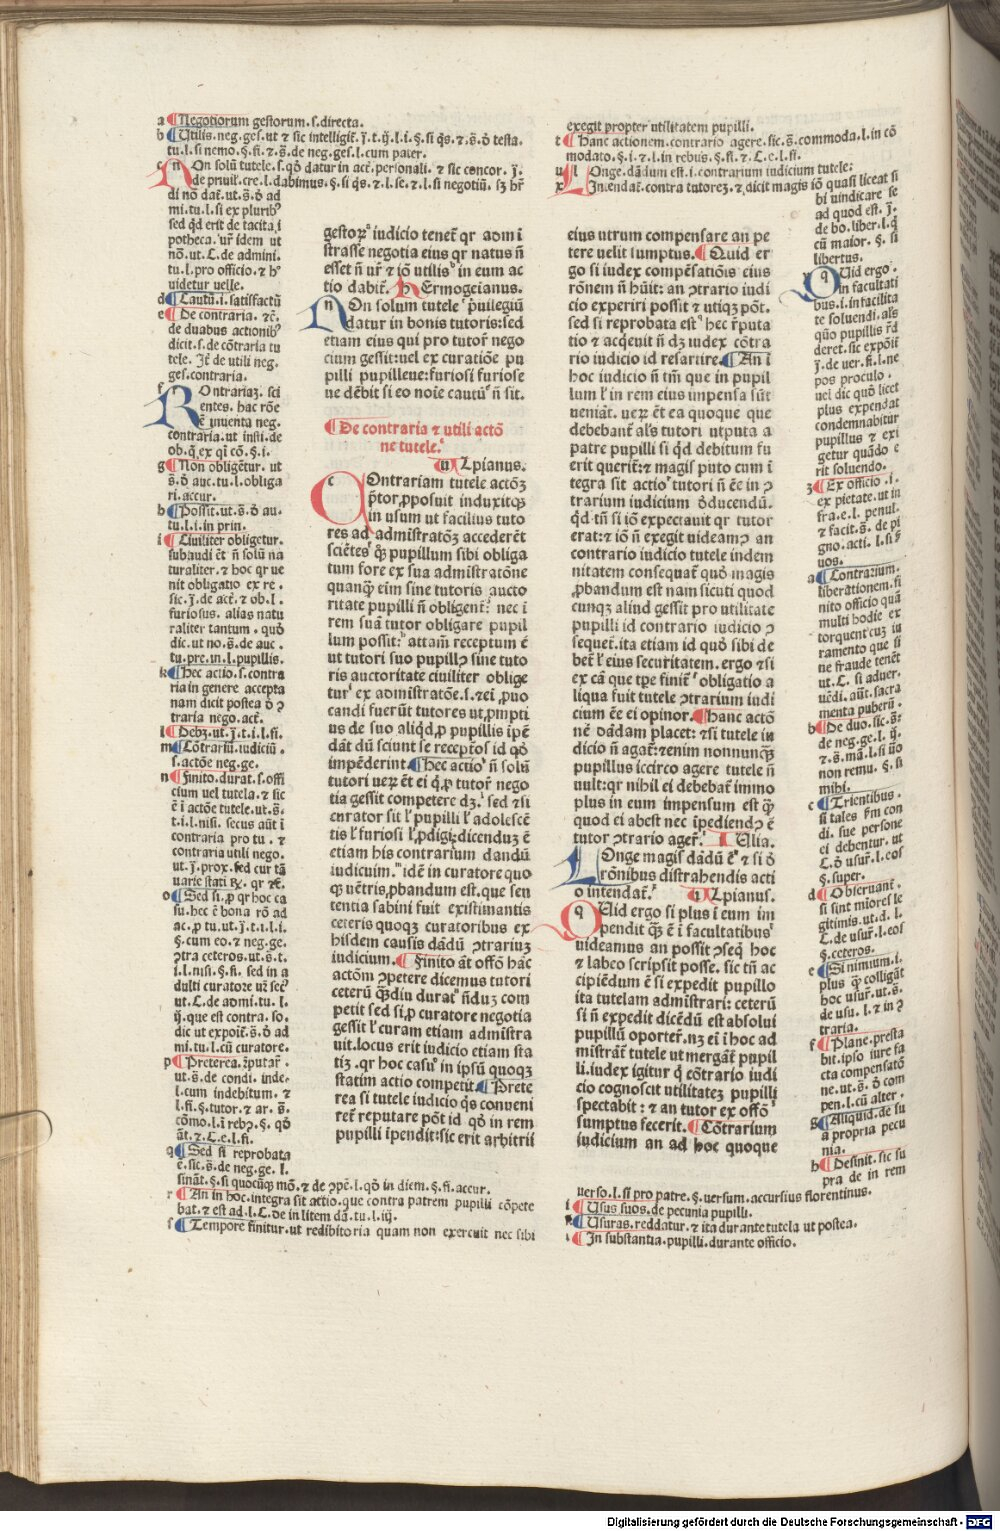 a ¶ Negotiorum gestorum.s.directa.
b ¶ Utilis.neg.ges.ut ⁊ sic
tu.l.si nemo.§.fi.⁊.s̄.de neg.ges.l.cum pater.
di nō dat̄.ut.s̄.ð ad
mi.tu.l.si ex pluribꝰ
sed qd̄ erit de tacita i
potheca.ur̄ idem ut
nō.ut.C.de admini.
tu.l.pro officio.⁊ hꝰ
uidetur uelle.
d ¶ Cautū.i.satisfactū
e ¶ De contraria.⁊c̄.
de duabus actionibꝰ
dicit.s.de cōtraria tu
tele. Itē de utili neg.
ges.contraria.
f
entes. hac rōne
ē inuenta neg.
contraria.ut insti.de
g ¶ Non obligētur. ut
s̄.ð auc.tu.l.obliga
ri.accur.
h ¶ Possit.ut.s̄.ð au.
tu.l.i.in prin.
i ¶ Ciuiliter obligetur.
subaudi ēt n̄ solū na
turaliter.⁊ hoc qr ue
nit obligatio ex re.
sic.j̄.de act̄.⁊ ob.l.
furiosus. alias natu
raliter tantum. quō
dic.ut no.s̄.de auc.
tu.pre.in.l.pupillis.
k ¶ Hec actio.s.contra
ria in genere accepta
nam dicit postea ð ꝯ
traria nego.act̄.
l ¶ Debꝫ.ut.j̄.t.i.l.fi.
m ¶ Cōtrariū.iudiciū.
s.actōe neg.ge.
n ¶ Finito.durat.s.offi
cium uel tutela.⁊ sic
ē i actōe tutele.ut.s̄.
t.i.l.nisi. secus aūt i
contraria pro tu. ⁊
contraria utili nego.
ut.j̄.prox.sed cur tā
o ¶ Sed si.ꝓ qr hoc ca
su.hec ē bona rō ad
ac.ꝓ tu.ut.j̄.t.i.l.i.
§.cum eo.⁊ neg.ge.
ꝯtra ceteros.ut.s̄.t.
i.l.nisi.§.fi. sed in a
dulti curatore ur̄ secꝰ
ut.C.de admi.tu.l.
ij.que est contra. so.
dic ut expoīt̄.s̄.ð ad
mi.tu.l.cū curatore.
p ¶ Preterea.
ut.s̄.de condi. inde.
l.cum indebitum. ⁊
l.fi.§.tutor.⁊ ar. s̄.
āt.⁊.C.e.l.fi.
q ¶ Sed si reprobata
ē.sic.s̄.de neg.ge. l.
r ¶ An in hoc.integra sit actio.que contra patrem pupilli cōpete
bat.⁊ est ad.l.C.de in litem dā.tu.l.iij.
s ¶ Tempore finitur.ut redibitoria quam non exercuit nec sibi
gestorꝫ iudicio tenet̄ qr admi
strasse negotia eius qr natus n̄
esset n̄ ur̄ ⁊ iō utilisᵇ in eum ac
tio dabit̄. Hermogeianus.
On solum tutele p̄uilegiū
datur in bonis tutoris:sed
etiam eius qui pro tutor̄ nego
cium gessit:uel ex curatiōe pu
pilli pupilleue:furiosi furiose
ue dēbit si eo noīe cautūᵈ n̄ sit.
¶ De contraria ⁊ utili actō
ne tutele.ᵉ
Ulpianus.
Ontrariam tutele actōꝫ
p̄tor ꝓposuit induxitqꝫ
in usum ut facilius tuto
res ad admistratōꝫ accederēt
sciētesᶠ qꝫ pupillum sibi obliga
tum fore ex sua admistratōne
quanqꝫ eim sine tutoris aucto
ritate pupilli n̄ obligentᵍ: nec i
rem suā tutor obligare pupil
lum possit:ʰ attam̄ receptum ē
ut tutori suo pupillꝯ sine tuto
ris auctoritate ciuiliter oblige
turⁱ ex admistratōe.s.⁊ei ꝓuo
candi fuerūt tutores ut ꝓmpti
us de suo aliqd ꝓ pupillis ipē
dāt dū sciunt se receptꝫos id qð
impēderint.¶ Hec actioᵏ n̄ solū
tutori uerꝫ ēt ei q ꝓ tutor̄ nego
tia gessit competere dꝫˡ. sed ⁊ si
curator sit ł pupilli ł adolescē
tis ł furiosi ł ꝓdigi:dicenduꝫ ē
etiam his contrarium dandū
iudicium.ᵐ idē in curatore quo
qꝫ uētris ꝓbandum est.que sen
tentia sabini fuit existimantis
ceteris quoqꝫ curatoribus ex
hisdem causis dādū ꝯtrariuꝫ
iudicium.¶ Finito āt offō hāc
actōm ꝯpetere dicemus tutori
ceterū qꝫdiu duratⁿ n̄duꝫ com
petit sed siᵒ ꝓ curatore negotia
gessit ł curam etiam admistra
uit.locus erit iudicio etiam sta
tiꝫ.qr hoc casu in ipsū quoqꝫ
statim actio competit.¶ Prete
rea si tutele iudicio qs conueni
ret̄ reputare pōt id qð in rem
pupilli īpendit:sic erit arbitrii
exegit propter utilitatem pupilli.
t ¶ Hanc actionem.contrario agere.sic.s̄.commoda.l.in cō
modato.§.i.⁊.l.in rebus.§.fi.⁊.C.e.l.fi.
u Longe.dādum est.i.contrarium iudicium tutele:
x Intendat.contra tutoreꝫ.⁊ dicit magis iō quasi liceat si
eius utrum compensare an pe
tere uelit sumptus.¶ Quid er
go si iudex compēsatiōis eius
rōnem n̄ hūit: an ꝯtrario iudi
cio experiri possit ⁊ utiqꝫ pōt.
sed si reprobata est hec r̄puta
tio ⁊ acqeuit n̄ dꝫ iudex cōtra
rio iudicio id resartire.¶ An i
hoc iudicio n̄ tm̄ que in pupil
lum ł in rem eius impensa sūt
ueniāt. uerꝫ ēt ea quoque que
debebant̄ als̄ tutori utputa a
patre pupilli si qd debitum fu
erit querit̄:⁊ magis puto cum i
tegra sit actio tutori n̄ ēe in ꝯ
trarium iudicium ðducendū.
qd tn̄ si iō expectauit qr tutor
erat:⁊ iō n̄ exegit uideamꝯ an
contrario iudicio tutele indem
nitatem consequat̄ quð magis
ꝓbandum est nam sicuti quod
cunqꝫ aliud gessit pro utilitate
pupilli id contrario iudicio ꝯ
sequet̄.ita etiam id quð sibi de
bet̄ ł eius securitatem. ergo ⁊si
ex cā que tpe finit̄ˢ obligatio a
liqua fuit tutele ꝯtrarium iudi
cium ēe ei opinor.¶ Hanc actō
nē dādam placet: ⁊si tutele iu
dicio n̄ agat̄:⁊enim nonnunqꝫ
pupillus iccirco agere tutele n̄
uult:qr nihil ei debebat̄ immo
plus in eum impensum est qꝫ
quod ei abest nec īpediendꝯ ē
tutor ꝯtrario agerᵗ. Ulia.
Onge magis dādū ēᵘ ⁊ si ð
rōnibus distrahendis acti
o intendat.ˣ Ulpianus.
Uid ergo si plus i eum im
pendit qꝫ ē i facultatibusʸ
uideamus an possit ꝯseq hoc
⁊ labeo scripsit posse. sic tn̄ ac
cipiēdum ē si expedit pupillo
ita tutelam admistrari: ceterū
si n̄ expedit dicēdū est absolui
pupillū oportet̄.nꝫ ei i hoc ad
mistrāt̄ tutele ut mergāt̄ pupil
li.iudex igitur q cōtrario iudi
cio cognoscit utilitateꝫ pupilli
spectabit : ⁊ an tutor ex offōᶻ
sumptus fecerit.¶ Cōtrarium
iudicium an ad hoc quoque
bi uindicare se
ad quod est. j̄.
de bo.liber.l.q
cū maior. §. si
libertus.
y Quid ergo.
in facultati
bus.i.in facilita
te soluendi.als̄
quo pupillis r̄d
deret.sic expoīt̄
j̄.de uer.fi.l.ne
pos proculo.
uel dic quð licet
plus expendat
condemnabitur
pupillus ⁊ exi
getur quādo e
rit soluendo.
z ¶ Ex officio .i.
ex pietate.ut in
fra.e.l. penul.
⁊ facit.s̄. de pi
uos.
a ¶ Contrarium.
liberationem.fi
nito officio quā
multi hodie ex
torquent cuꝫ iu
ramento que si
ne fraude tenēt
ut.C. si aduer.
uēdi. aūt.sacra
menta puberū.
b ¶ De duo.sic.s̄:
de neg.ge.l. ij.
non remu. §. si
mihi.
c ¶ Trientibus.
si tales pm̄ con
di. sue persone
ei debentur. ut
C.ð usur̄.l.eos
§.super.
d ¶ Obseruant̄.
si sint miores le
gitimis.ut.d. l.
C.de usur̄.l.eos
§.ceteros.
e ¶ Si nimium.i.
plus qꝫ colligūt
hoc usur̄.ut.s̄.
de usu. l.⁊ in ꝯ
traria.
f ¶ Plane.presta
bit.ipso iure fa
cta compensatō
ne.ut.s̄. ð com
pen.l.cū alter.
g ¶ Aliquid.de su
a propria pecu
nia.
h ¶ Desinit.sic su
pra de in rem
uerso.l.si pro patre.§.uersum.accursius florentinus.
i ¶ Usus suos.de pecunia pupilli.
k ¶ Usuras.reddatur.⁊ ita durante tutela ut postea.
l ¶ In substantia.pupilli.durante officio.
Digitalisierung gefördert durch die Deutsche Forschungsgemeinschaft - DFG